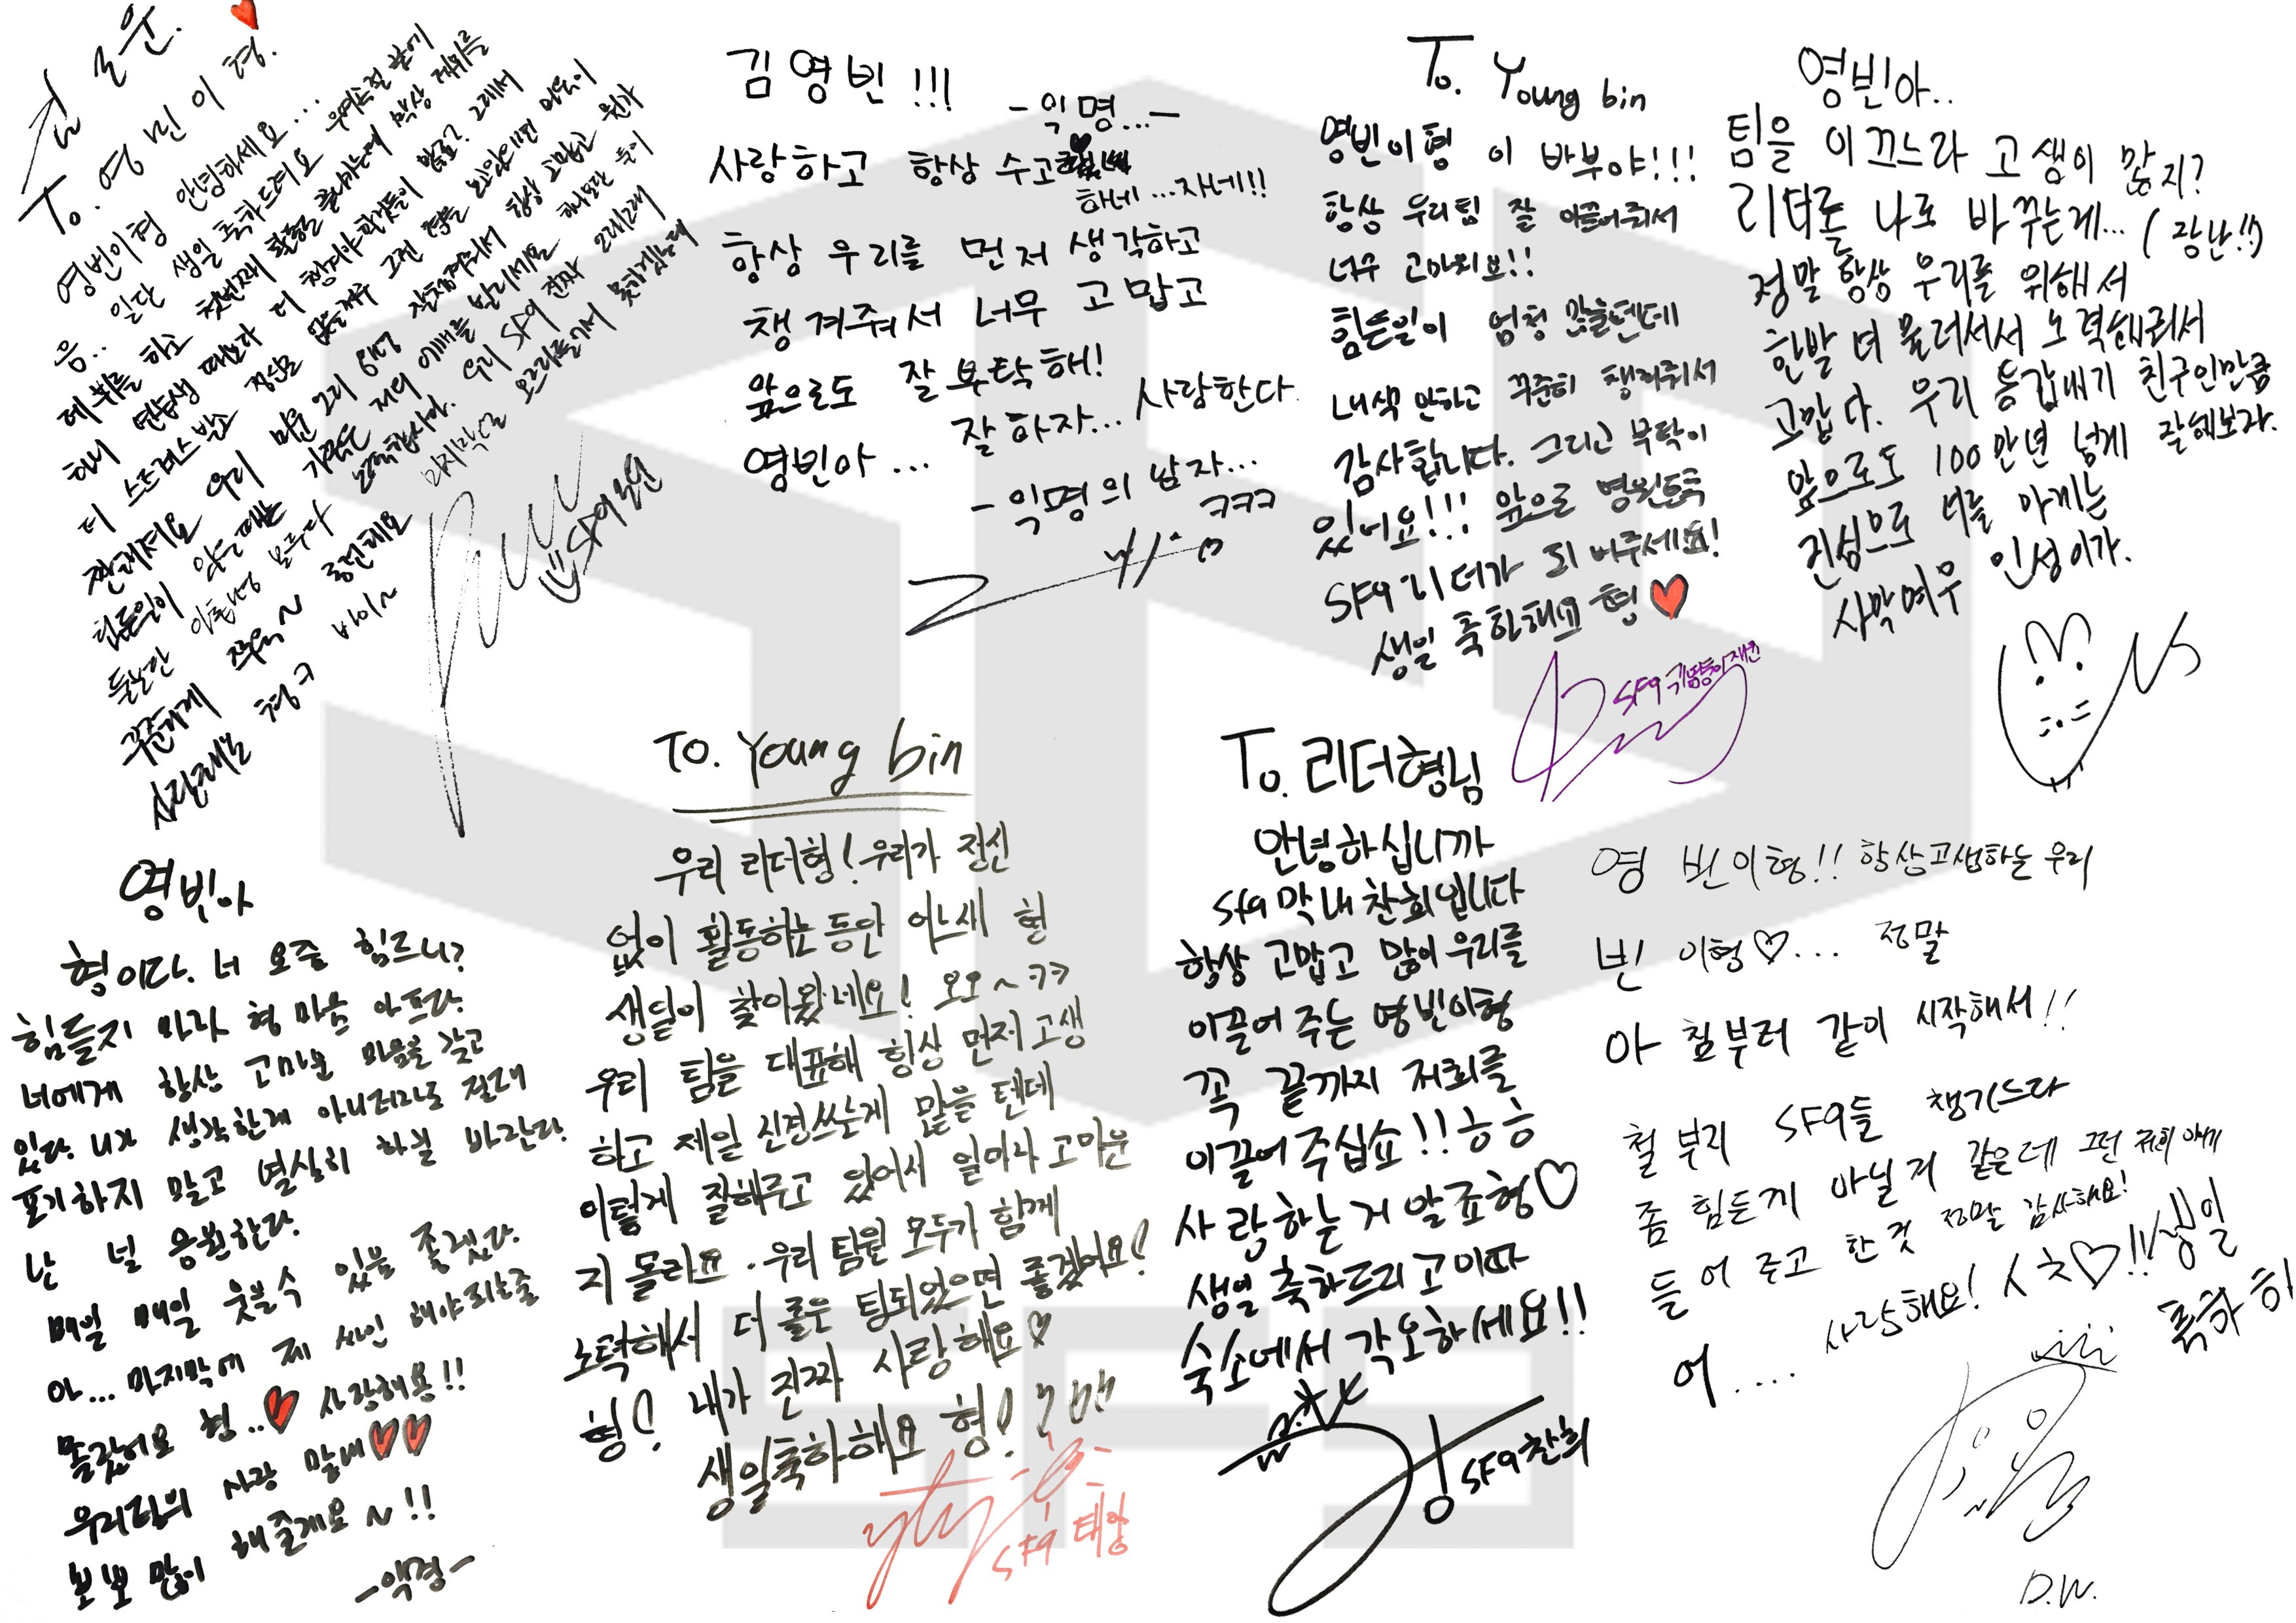 김로운.
To. 영빈이형.
영빈이형 안녕하세요...
음.. 일단 생일 축하드려요 우여곡절 끝에
데뷔를 하고 첫번째 활동을 끝내가는데 막상 데뷔를
하니 연습생 때보다 더 챙겨야 할것들이 많죠? 그래서
더 스트레스 받고 정신은 없을꺼구 그런 형을 보고있으면 맘이
짠해져요 우리 미운 그리 8명 잘챙겨줘서 항상 고맙고 뭔가
힘든일이 있을때는 가끔은 저의 어깨를 빌리세요 하나보단 둘이
둘보단 아홉명 모두다 노력합시다. 우리 SF9 진짜 오래오래
꾸준하게 쭈욱~ 롱런해요 마지막은 오그라들거서 못하겠는데
사랑해요 형ㅋ 바이~
SF9 로운
김영빈!!!
-익명...-
사랑하고 항상 수고
하네...자네!!
항상 우리를 먼저 생각하고
챙겨줘서 너무 고맙고
앞으로도 잘 부탁해!
영빈아... 잘하자... 사람한다.
-익명의 남자...
ㅋㅋㅋ
To. Young bin
영빈이형 이 바부야!!!
항상 우리팀 잘 이끌어줘서
너무 고마워요!!
힘든일이 엄청 많을텐데
내색 안하고 꾸준히 챙겨줘서
감사합니다. 그리고 부탁이
있어요!!! 앞으로 영원토록
SF9 리더가 되어주세요!
생일 축하해요 형❤
SF9 귀염둥이 재윤
영빈아..
팀을 이끄느라 고생이 많지?
리더를 나로 바꾸는게... (장난!!)
정말 항상 우리를 위해서
한발 더 물러서서 노력해줘서
고맙다. 우리 동갑내기 친구인만큼
앞으로도 100만년 넘게 잘해보자.
진심으로 너를 아끼는
사막여우 인성이가.
영빈아
형이다. 너 요즘 힘드니?
힘들지 마라 형 마음 아프다.
너에게 항상 고마운 마음을 갖고
있다. 니가 생각한게 아니더라도 절대
포기하지 말고 열심히 하길 바란다.
난 널 응원한다.
매일 매일 웃을수 있음 좋겠다.
아... 마지막에 제 싸인 해야되는줄
몰랐어요 형..❤ 사랑해용!!
우리팀의 사랑 막내❤❤
뽀뽀 많이 해줄게요~!!
-액경-
To. Young bin
우리 리더형! 우리가 정신
없이 활동하는 동안 어느새 형
생일이 찾아왔네요! 오오~ㅋㅋ
우리 팀을 대표해 항상 먼저 고생
하고 제일 신경쓰는게 많을 텐데
이렇게 잘해주고 있어서 얼마나 고마운
지 몰라요. 우리 팀원 모두가 함께
노력해서 더 좋은 팀되었으면 좋겠어요!
형! 내가 진짜 사랑해요♡
생일축하해요 형!
SF9 태양
To. 리더형님
안녕하십니까
SF9 막내 찬희입니다
항상 고맙고 많이 우리를
이끌어 주는 영빈이형
꼭 끝까지 저희를
이끌어 주십쇼!! ㅎㅎ
사랑하는거 알죠형♡
생일 축하드리고 이따
숙소에서 각오하세요!!
SF9 찬희
영 빈이형!! 항상고생하는 우리
빈 이형♡... 정말
아 첨부터 같이 시작해서!!
철 부지 SF9들 챙기느라
좀 힘든게 아닐거 같은데 그런
들어 주고 한 것 정말 감사해요!
어.... 사랑해요! ♡!! 생일
축하 히
D.W.